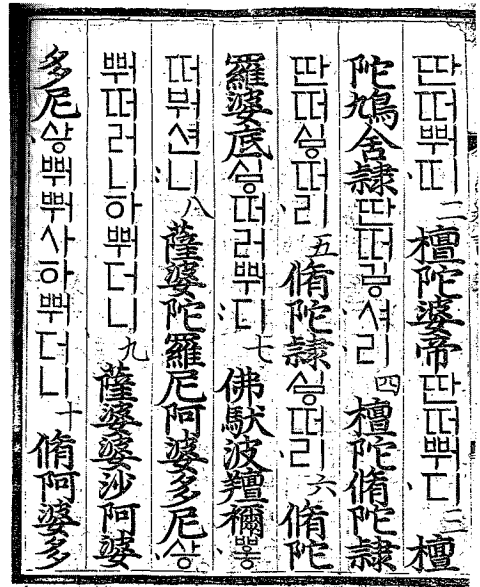 딴떠뿨띠二檀陀婆帝딴떠뿨디三檀
陀鳩舍隸딴떠궁셔리四檀陀脩陀隸
딴떠숭떠리五脩陀隸숭떠리六脩陀
羅婆底숭떠러뿨디七佛馱波羶禰뿡
떠붜션니八薩婆陀羅尼阿婆多尼상
뿨떠러니하뿨더니九薩婆婆沙阿婆
多尼상뿨뿨사하뿨더니十脩阿婆多